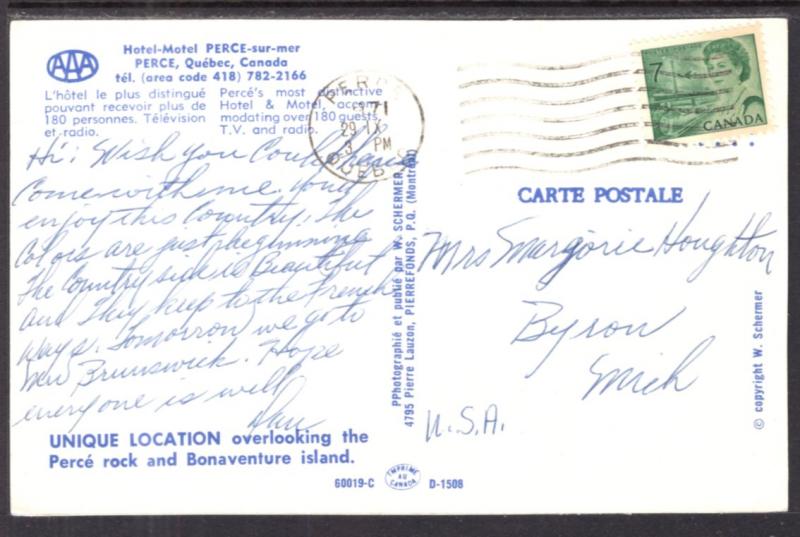 AAA
Hotel-Motel PERCE-sur-mer
PERCE, Québec, Canada
tél. (area code 418) 782-2166
L'hôtel le plus distingué
pouvant recevoir plus de
180 personnes. Télévision
et radio.
Percé's most distinctive
Hotel & Motel accom-
modating over 180 guests.
T.V. and radio.
PERCE
71
29 IX
3 PM
QUEBEC
7
CANADA
Hi: Wish you Could have
Come with me. You'd
enjoy this Country. The
Colors are just beginning
The Country side is Beautiful
and They keep to the French
ways. Tomorrow we go to
New Brunswick. Hope
everyone is well
UNIQUE LOCATION overlooking the
Percé rock and Bonaventure island.
PPhotographié et publié par W. SCHERMER,
4795 Pierre Lauzon, PIERREFONDS, P.Q. (Montréal)
CARTE POSTALE
Mrs Marjorie Houghton
Byron
Mich
U.S.A.
© copyright W. Schermer
60019-C
IMPRIMÉ
AU
CANADA
D-1508